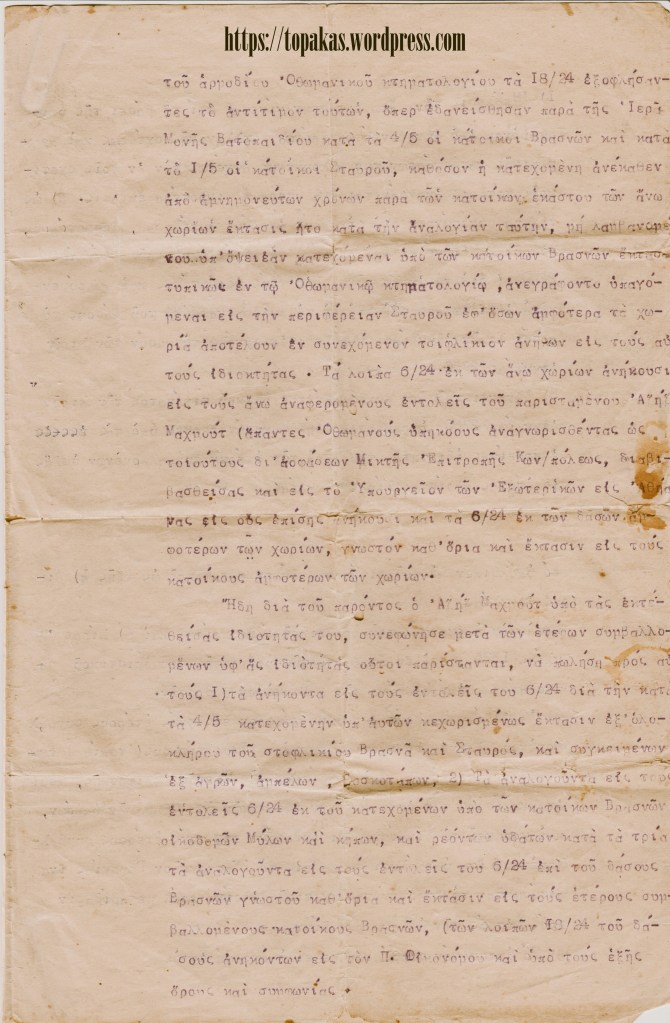 https://topakas.wordpress.com
τοῦ ἁρμοδίου Ὀθωμανικοῦ κτηματολογίου τὰ 18/24 ἐξοφλήσαν-
τες τὸ ἀντίτιμον τούτων, ὅπερ ἐδανείσθησαν παρὰ τῆς Ἱερᾶ
Μονῆς Βατοπαιδίου κατὰ τὰ 4/5 οἱ κάτοικοι Βρασνῶν καὶ κατα
τὸ 1/5 οἱ κάτοικοι Σταυροῦ, καθόσον ἡ κατεχομένη ἀνέκαθεν
ἀπὸ ἀμνημονεύτων χρόνων παρα τῶν κατοίκων ἑκάστου τῶν ἄνω
χωρίων ἔκτασις ἦτο κατὰ τὴν ἀναλογίαν ταύτην, μὴ λαμβανομέ
νου ὑπ'ὄψει ἐὰν κατεχόμεναι ὑπὸ τῶν κατοίκων Βρασνῶν ἐκτάσε
τυπικῶς ἐν τῷ Ὀθωμανικῷ κτηματολογίῳ, ἀνεγράφοντο ὑπαγό-
μεναι εἰς τὴν περιφέρειαν Σταυροῦ ἐφ'ὅσων ἀμφότερα τὰ χω-
ρία ἀποτέλουν ἓν συνεχόμενον τσιφλίκιον ἀνῆκων εἰς τοὺς αὐ
τοὺς ἰδιοκτήτας. Τὰ λοιπὰ 6/24 ἐκ τῶν ἄνω χωρίων ἀνήκουσι
εἰς τοὺς ἄνω ἀναφερομένους ἐντολεῖς τοῦ παρισταμένου Ἀζὴζ
Μαχμοὺτ (ἅπαντες Ὀθωμανοὺς ὑπηκόους ἀναγνωρισθέντας ὡς
τοιούτους δι'ἀποφάσεων Μικτῆς Ἐπιτροπῆς Κων/πόλεως, διαβι-
βασθείσας καὶ εἰς τὸ Ὑπουργεῖον τῶν Ἐξωτερικῶν εἰς Ἀθή
νας εἰς οὓς ἐπίσης ἀνήκουσι καὶ τὰ 6/24 ἐκ τῶν δασῶν ἀμ-
φοτέρων τῶν χωρίων, γνωστὸν καθ'ὅρια καὶ ἔκτασιν εἰς τοὺς
κατοίκους ἀμφοτέρων τῶν χωρίων.
Ἤδη διὰ τοῦ παρόντος ὁ Ἀζὴζ Μαχμοὺτ ὑπὸ τὰς ἐκτε-
θείσας ἰδιότητάς του, συνεφώνησε μετὰ τῶν ἑτέρων συμβαλλο-
μένων ὑφ'ἃς ἰδιότητάς οὗτοι παρίστανται, νὰ πωλήσῃ πρὸς αὐ
τοὺς 1)τὰ ἀνήκοντα εἰς τοὺς ἐντολεῖς του 6/24 διὰ τὴν κατὰ
τὰ 4/5 κατεχομένην ὑπ'αὐτῶν κεχωρισμένως ἔκτασιν ἐξ'ὁλο-
κλήρου τοῦ τσιφλικίου Βρασνᾶ καὶ Σταυρός, καὶ συγκειμένων
ἐξ ἀγρῶν, ἀμπέλων, βοσκοτόπων, 2) Τὰ ἀναλογοῦντα εἰς τοὺς
ἐντολεῖς 6/24 ἐκ τοῦ κατεχομένων ὑπὸ τῶν κατοίκων Βρασνῶν
οἰκοδομῶν Μύλων καὶ κήπων, καὶ ρεόντων ὑδάτων κατὰ τὰ τρία
τὰ ἀναλογοῦντα εἰς τοὺς ἐντολεῖς του 6/24 ἐπὶ τοῦ δάσους
Βρασνῶν γνωστοῦ καθ'ὅρια καὶ ἔκτασιν εἰς τοὺς ἑτέρους συμ
βαλλομένους κατοίκους Βρασνῶν, (τῶν λοιπῶν 18/24 τοῦ δά-
σους ἀνηκόντων εἰς τὸν Π. Οἰκονόμου καὶ ὑπὸ τοὺς ἑξῆς
ὅρους καὶ συμφωνίας.